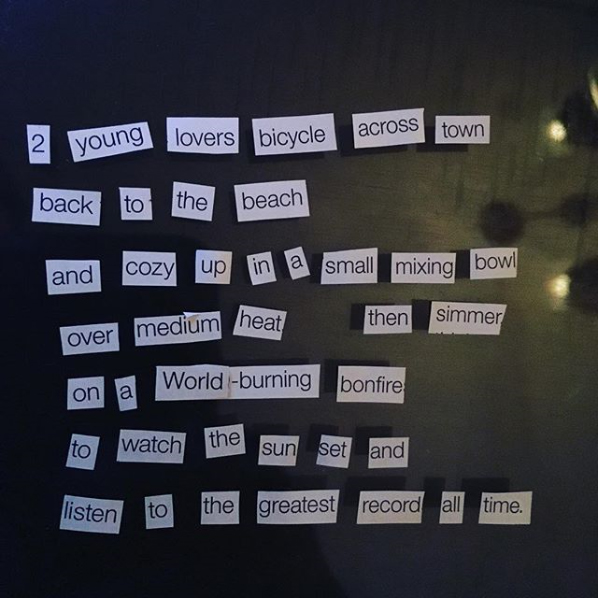 2 young lovers bicycle across town
back to the beach
and cozy up in a small mixing bowl
over medium heat then simmer
on a World-burning bonfire
to watch the sun set and
listen to the greatest record all time.